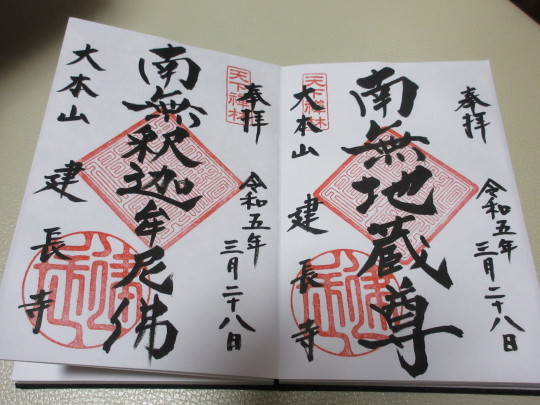 奉拝
令和五年
三月二十八日
南無地蔵尊
天下禅林
大本山
建長寺
奉拝
令和五年
三月二十八日
南無釈迦牟尼佛
天下禅林
大本山
建長寺